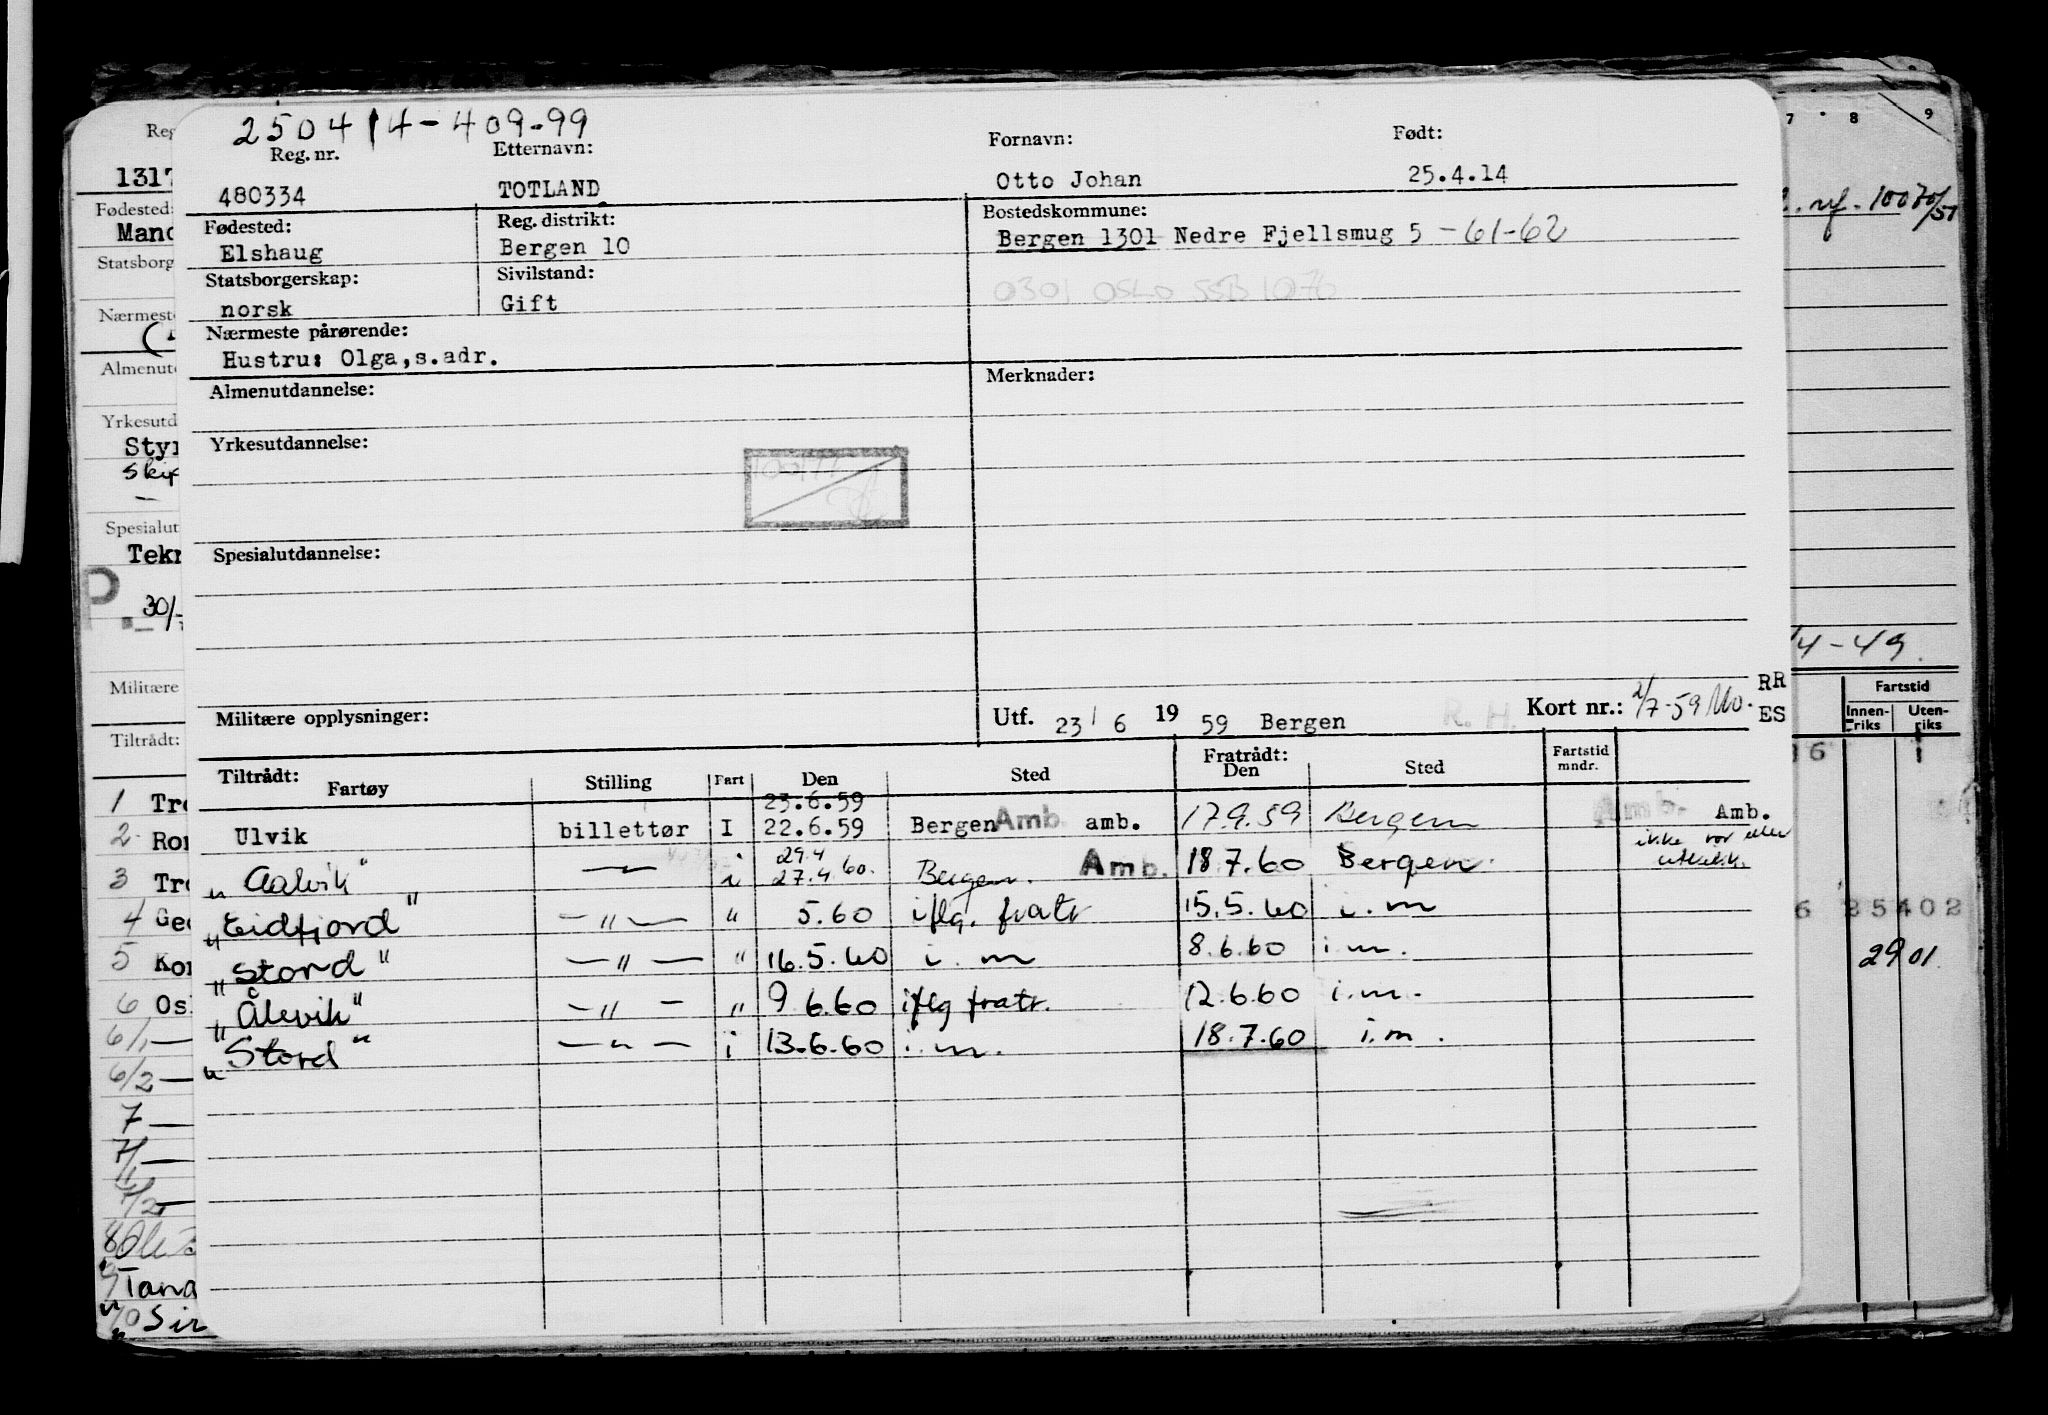 250414-409-99
Reg. nr. Etternavn: Fornavn: Født:
480334 TOTLAND Otto Johan 25.4.14
Fødested: Reg. distrikt: Bostedskommune:
Elshaug Bergen 10 Bergen 1301 Nedre Fjellsmug 5 - 61-62
Statsborgerskap: Sivilstand:
norsk Gift 0301 OSLO SSB 1070
Nærmeste pårørende:
Hustru: Olga, s.adr.
Almenutdannelse: Merknader:
Yrkesutdannelse:
Spesialutdannelse:
Militære opplysninger: Utf. 23/6 1959 Bergen R. H. Kort nr.: 2/7-59 Mo. RR
ES
Tiltrådt: Fratrådt: Fartstid
Fartøy Stilling Fart Den Sted Den Sted mndr.
23.6.59
Ulvik billettør I 22.6.59 Bergen Amb. amb. 17.9.59 Bergen Amb. Amb.
29.4
"Aalvik" — i 27.4 60. Bergen. Amb. 18.7.60 Bergen.
"Eidfjord" —"— " 5.60 iflg. fratr 15.5.60 i.m
"Stord" —"— " 16.5.60 i.m 8.6.60 i m.
"Ålvik" —"— " 9.6.60 iflg fratr. 12.6.60 i.m.
"Stord" —"— i 13.6.60 i.m. 18.7.60 i.m.
Reg
1317
Fødested:
Mand
Statsborg
Nærmeste
Almenutd
Yrkesutd
Styr
Skip
Spesialut
Tekn
30/
Militære
Tiltrådt:
1 Tro
2 Ron
3 Tro
4 Geo
5 Kon
6 Os
6/1 —
6/2 —
7 —
7/1 —
7/2 —
8
9 Tana
10 Sir
7 8 9
4-49
Fartstid
Innen-riks Uten-riks
6 25402
29 01